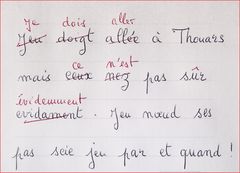 Je dois aller
Jeu dorgt allée à Thouars
ce n'est
mais ceux nez pas sûr
évidemment
evidament. Jeu nœud ses
pas seie jeu par et quand !